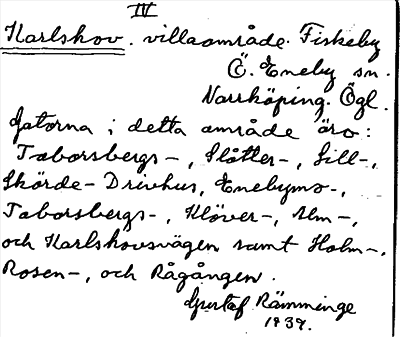 IV
Karlshov. villaområde. Fiskeby
Ö. Eneby sn.
Norrköping. Ögl.
Gatorna i detta område äro:
Taborsbergs-, Slåtter-, Sill-,
Skörde- Drivhus, Enebymo-,
Taborsbergs-, Klöver-, Alm-,
och Karlshovsvägen samt Holm-,
Rosen-, och Rågången.
Gustaf Rämminge
1939.